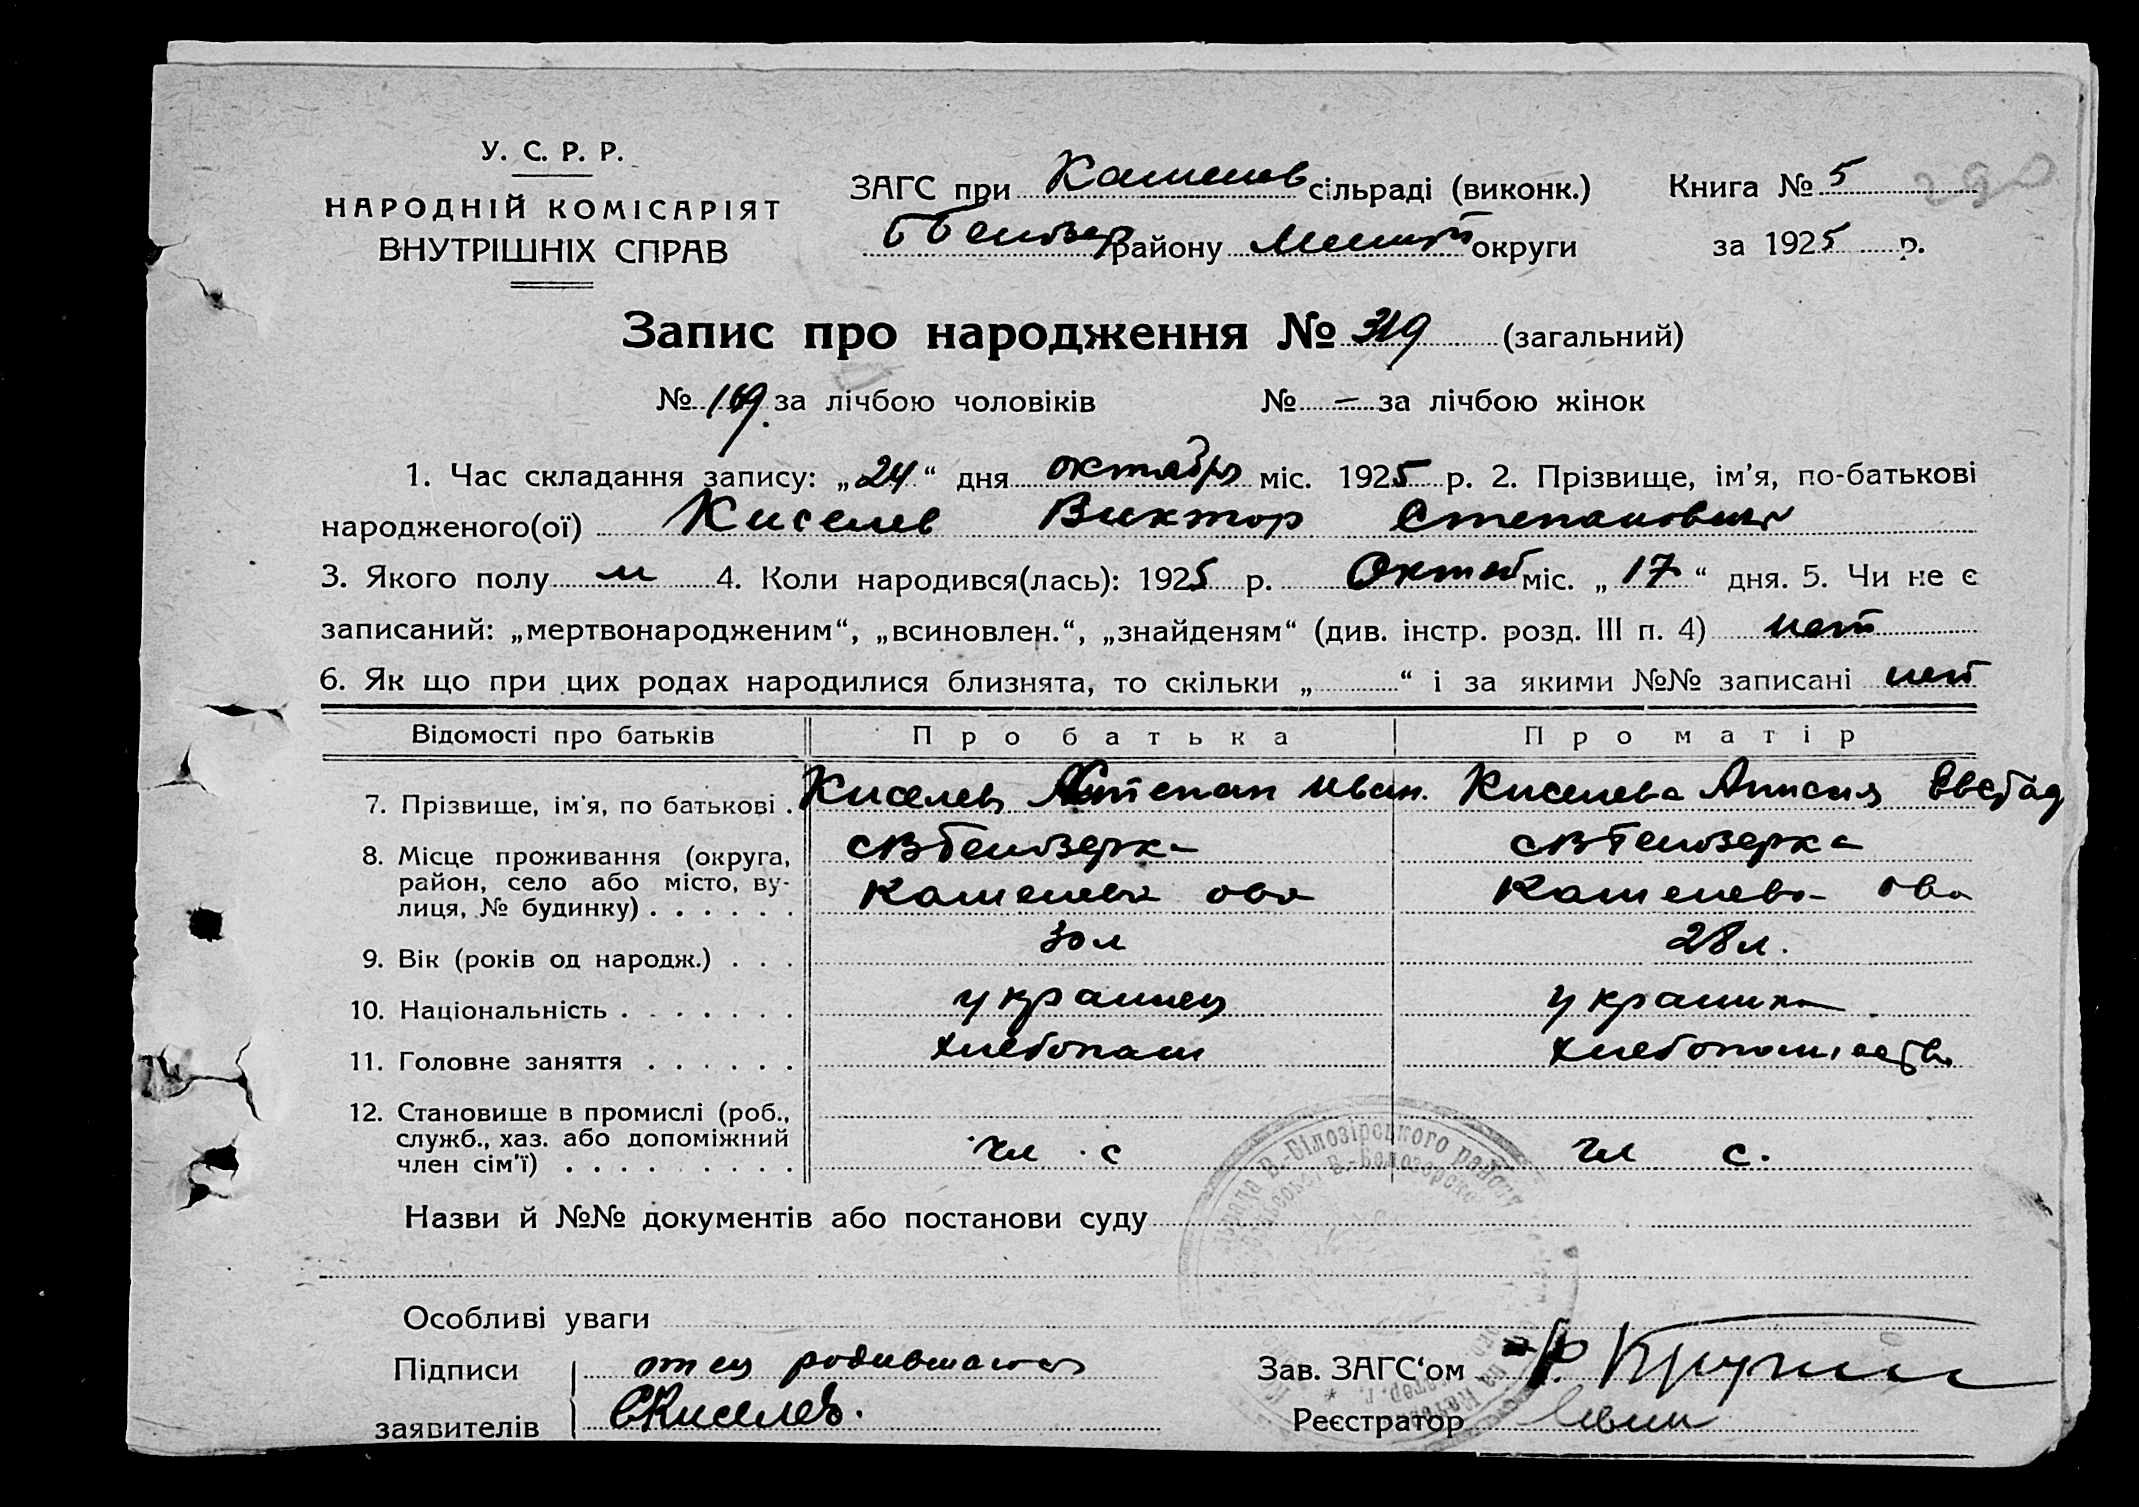 У. С. Р. Р.
НАРОДНІЙ КОМІСАРІЯТ
ВНУТРІШНІХ СПРАВ
ЗАГС при сільраді (виконк.)
району округи
Книга № 5
290
за 1925 р.
Запис про народження № 319 (загальний)
№ 169. за лічбою чоловіків № — за лічбою жінок
1. Час складання запису: „24“ дня октября міс. 1925 р. 2. Прізвище, ім'я, по-батькові
народженого(ої) Киселев Виктор Степанович
3. Якого полу м 4. Коли народився(лась): 1925 р. Октяб міс. „17“ дня. 5. Чи не є
записаний: „мертвонародженим“, „всиновлен.“, „знайденям“ (див. інстр. розд. III п. 4) нет
6. Як що при цих родах народилися близнята, то скільки „ “ і за якими №№ записані нет
Відомості про батьків Про батька Про матір
7. Прізвище, ім'я, по батькові . Киселев Степан Иван. Киселева Анисия
8. Місце проживання (округа,
район, село або місто, ву-
лиця, № будинку) . . . . . .
9. Вік (років од народж.) . . . 30 л 28 л.
10. Національність . . . . . . . украинец украинка
11. Головне заняття . . . . . . хлебопаш
12. Становище в промислі (роб.,
служб., хаз. або допоміжний
член сім'ї) . . . . . . . . . чл с чл с.
В.-Білозірського району
Назви й №№ документів або постанови суду
Особливі уваги
Підписи отец родившагося
заявителів СКиселев.
Зав. ЗАГС‘ом
Реєстратор